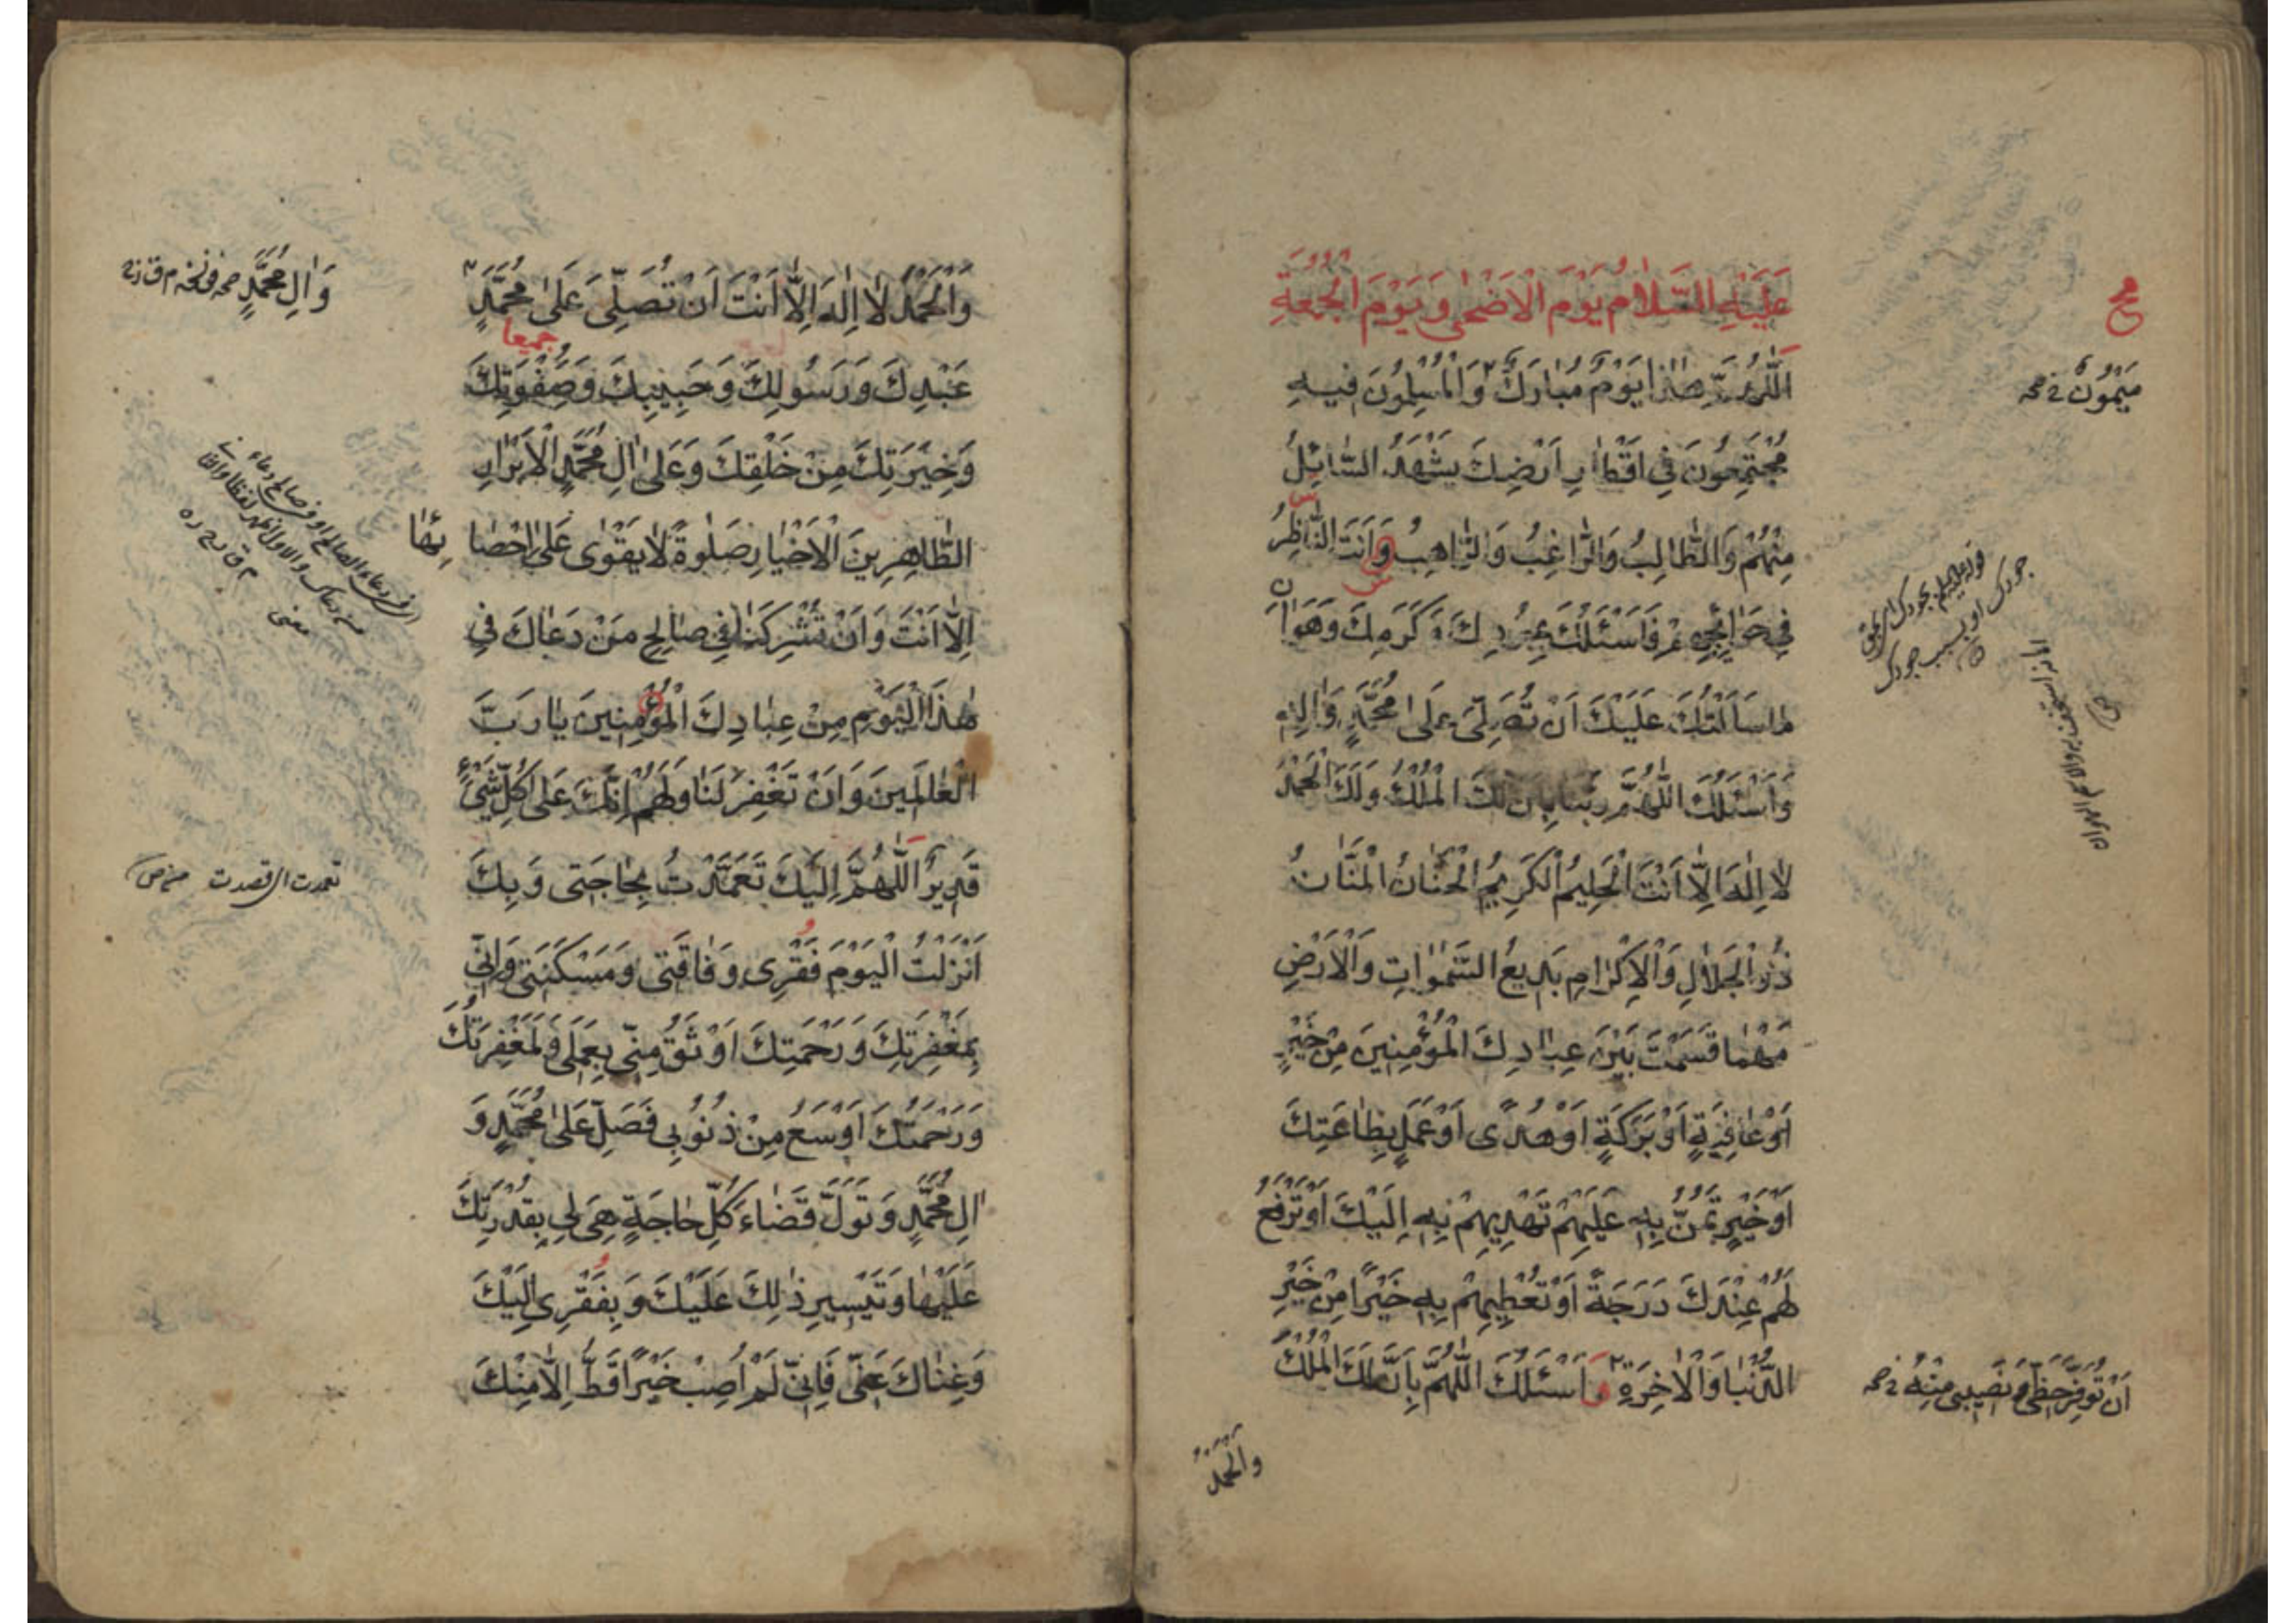 عَلَيْهِ السَّلَامُ يَوْمَ الْأَضْحٰى وَيَوْمَ الْجُمُعَةِ
اَللّٰهُمَّ هٰذَا يَوْمٌ مُبَارَكٌ وَالْمُسْلِمُونَ فِيهِ
مَيْمُونٌ
مُجْتَمِعُونَ فِي اَقْطَارِ اَرْضِكَ يَشْهَدُ السَّائِلُ
مِنْهُمْ وَالطَّالِبُ وَالرَّاغِبُ وَالرَّاهِبُ وَاَنْتَ النَّاظِرُ
فِي حَوَائِجِهِمْ فَاَسْئَلُكَ بِجُودِكَ وَكَرَمِكَ وَهَوَانِ
مَا سَاَلْتُكَ عَلَيْكَ اَنْ تُصَلِّيَ عَلٰى مُحَمَّدٍ وَاٰلِهِ
وَاَسْئَلُكَ اللّٰهُمَّ رَبَّنَا بِاَنَّ لَكَ الْمُلْكَ وَلَكَ الْحَمْدَ
لَا اِلٰهَ اِلَّا اَنْتَ الْحَلِيمُ الْكَرِيمُ الْحَنَّانُ الْمَنَّانُ
ذُو الْجَلَالِ وَالْاِكْرَامِ بَدِيعُ السَّمٰوَاتِ وَالْاَرْضِ
مَهْمَا قَسَمْتَ بَيْنَ عِبَادِكَ الْمُؤْمِنِينَ مِنْ خَيْرٍ
اَوْ عَافِيَةٍ اَوْ بَرَكَةٍ اَوْ هُدًى اَوْ عَمَلٍ بِطَاعَتِكَ
اَوْ خَيْرٍ تَمُنُّ بِهِ عَلَيْهِمْ تَهْدِيهِمْ بِهِ اِلَيْكَ اَوْ تَرْفَعُ
لَهُمْ عِنْدَكَ دَرَجَةً اَوْ تُعْطِيهِمْ بِهِ خَيْرًا مِنْ خَيْرِ
الدُّنْيَا وَالْاٰخِرَةِ وَاَسْئَلُكَ اللّٰهُمَّ بِاَنَّ لَكَ الْمُلْكَ
اَنْ تُوَفِّرَ حَظِّي وَنَصِيبِي مِنْهُ
وَالْحَمْدَ
وَالْحَمْدَ لَا اِلٰهَ اِلَّا اَنْتَ اَنْ تُصَلِّيَ عَلٰى مُحَمَّدٍ
وَاٰلِ مُحَمَّدٍ
جميعا
عَبْدِكَ وَرَسُولِكَ وَحَبِيبِكَ وَصَفْوَتِكَ
وَخِيَرَتِكَ مِنْ خَلْقِكَ وَعَلٰى اٰلِ مُحَمَّدٍ الْاَبْرَارِ
الطَّاهِرِينَ الْاَخْيَارِ صَلٰوةً لَا يَقْوٰى عَلٰى اِحْصَائِهَا
اِلَّا اَنْتَ وَاَنْ تُشْرِكَنَا فِي صَالِحِ مَنْ دَعَاكَ فِي
هٰذَا الْيَوْمِ مِنْ عِبَادِكَ الْمُؤْمِنِينَ يَا رَبَّ
الْعَالَمِينَ وَاَنْ تَغْفِرَ لَنَا وَلَهُمْ اِنَّكَ عَلٰى كُلِّ شَيْءٍ
قَدِيرٌ اَللّٰهُمَّ اِلَيْكَ تَعَمَّدْتُ بِحَاجَتِي وَبِكَ
تعمدت اى قصدت
اَنْزَلْتُ الْيَوْمَ فَقْرِي وَفَاقَتِي وَمَسْكَنَتِي وَاِنِّي
بِمَغْفِرَتِكَ وَرَحْمَتِكَ اَوْثَقُ مِنِّي بِعَمَلِي وَلَمَغْفِرَتُكَ
وَرَحْمَتُكَ اَوْسَعُ مِنْ ذُنُوبِي فَصَلِّ عَلٰى مُحَمَّدٍ وَ
اٰلِ مُحَمَّدٍ وَتَوَلَّ قَضَاءَ كُلِّ حَاجَةٍ هِيَ لِي بِقُدْرَتِكَ
عَلَيْهَا وَتَيْسِيرِ ذٰلِكَ عَلَيْكَ وَبِفَقْرِي اِلَيْكَ
وَغِنَاكَ عَنِّي فَاِنِّي لَمْ اُصِبْ خَيْرًا قَطُّ اِلَّا مِنْكَ